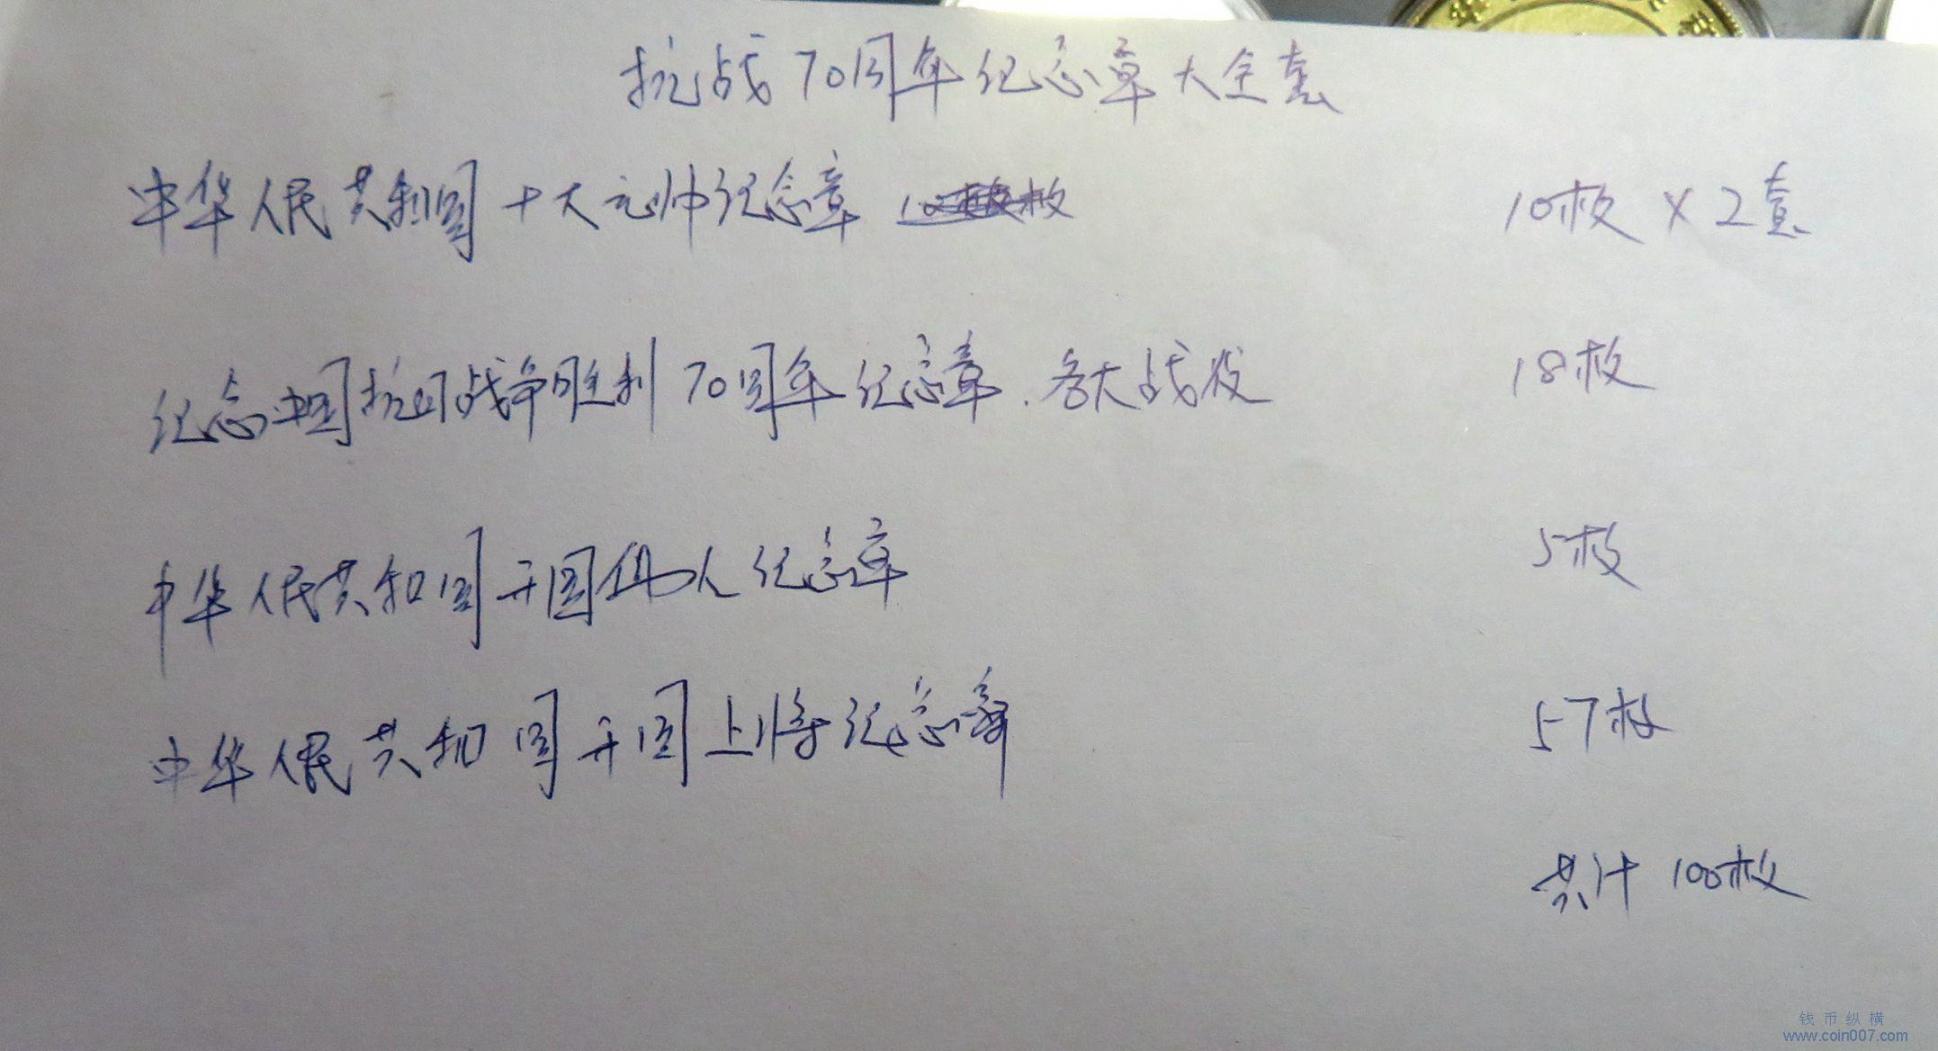 抗战70周年纪念章大全套
中华人民共和国十大元帅纪念章 10枚×2套
纪念中国抗日战争胜利70周年纪念章.各大战役 18枚
中华人民共和国开国伟人纪念章 5枚
中华人民共和国开国上将纪念章 57枚
共计 100枚
钱币纵横
www.coin007.com